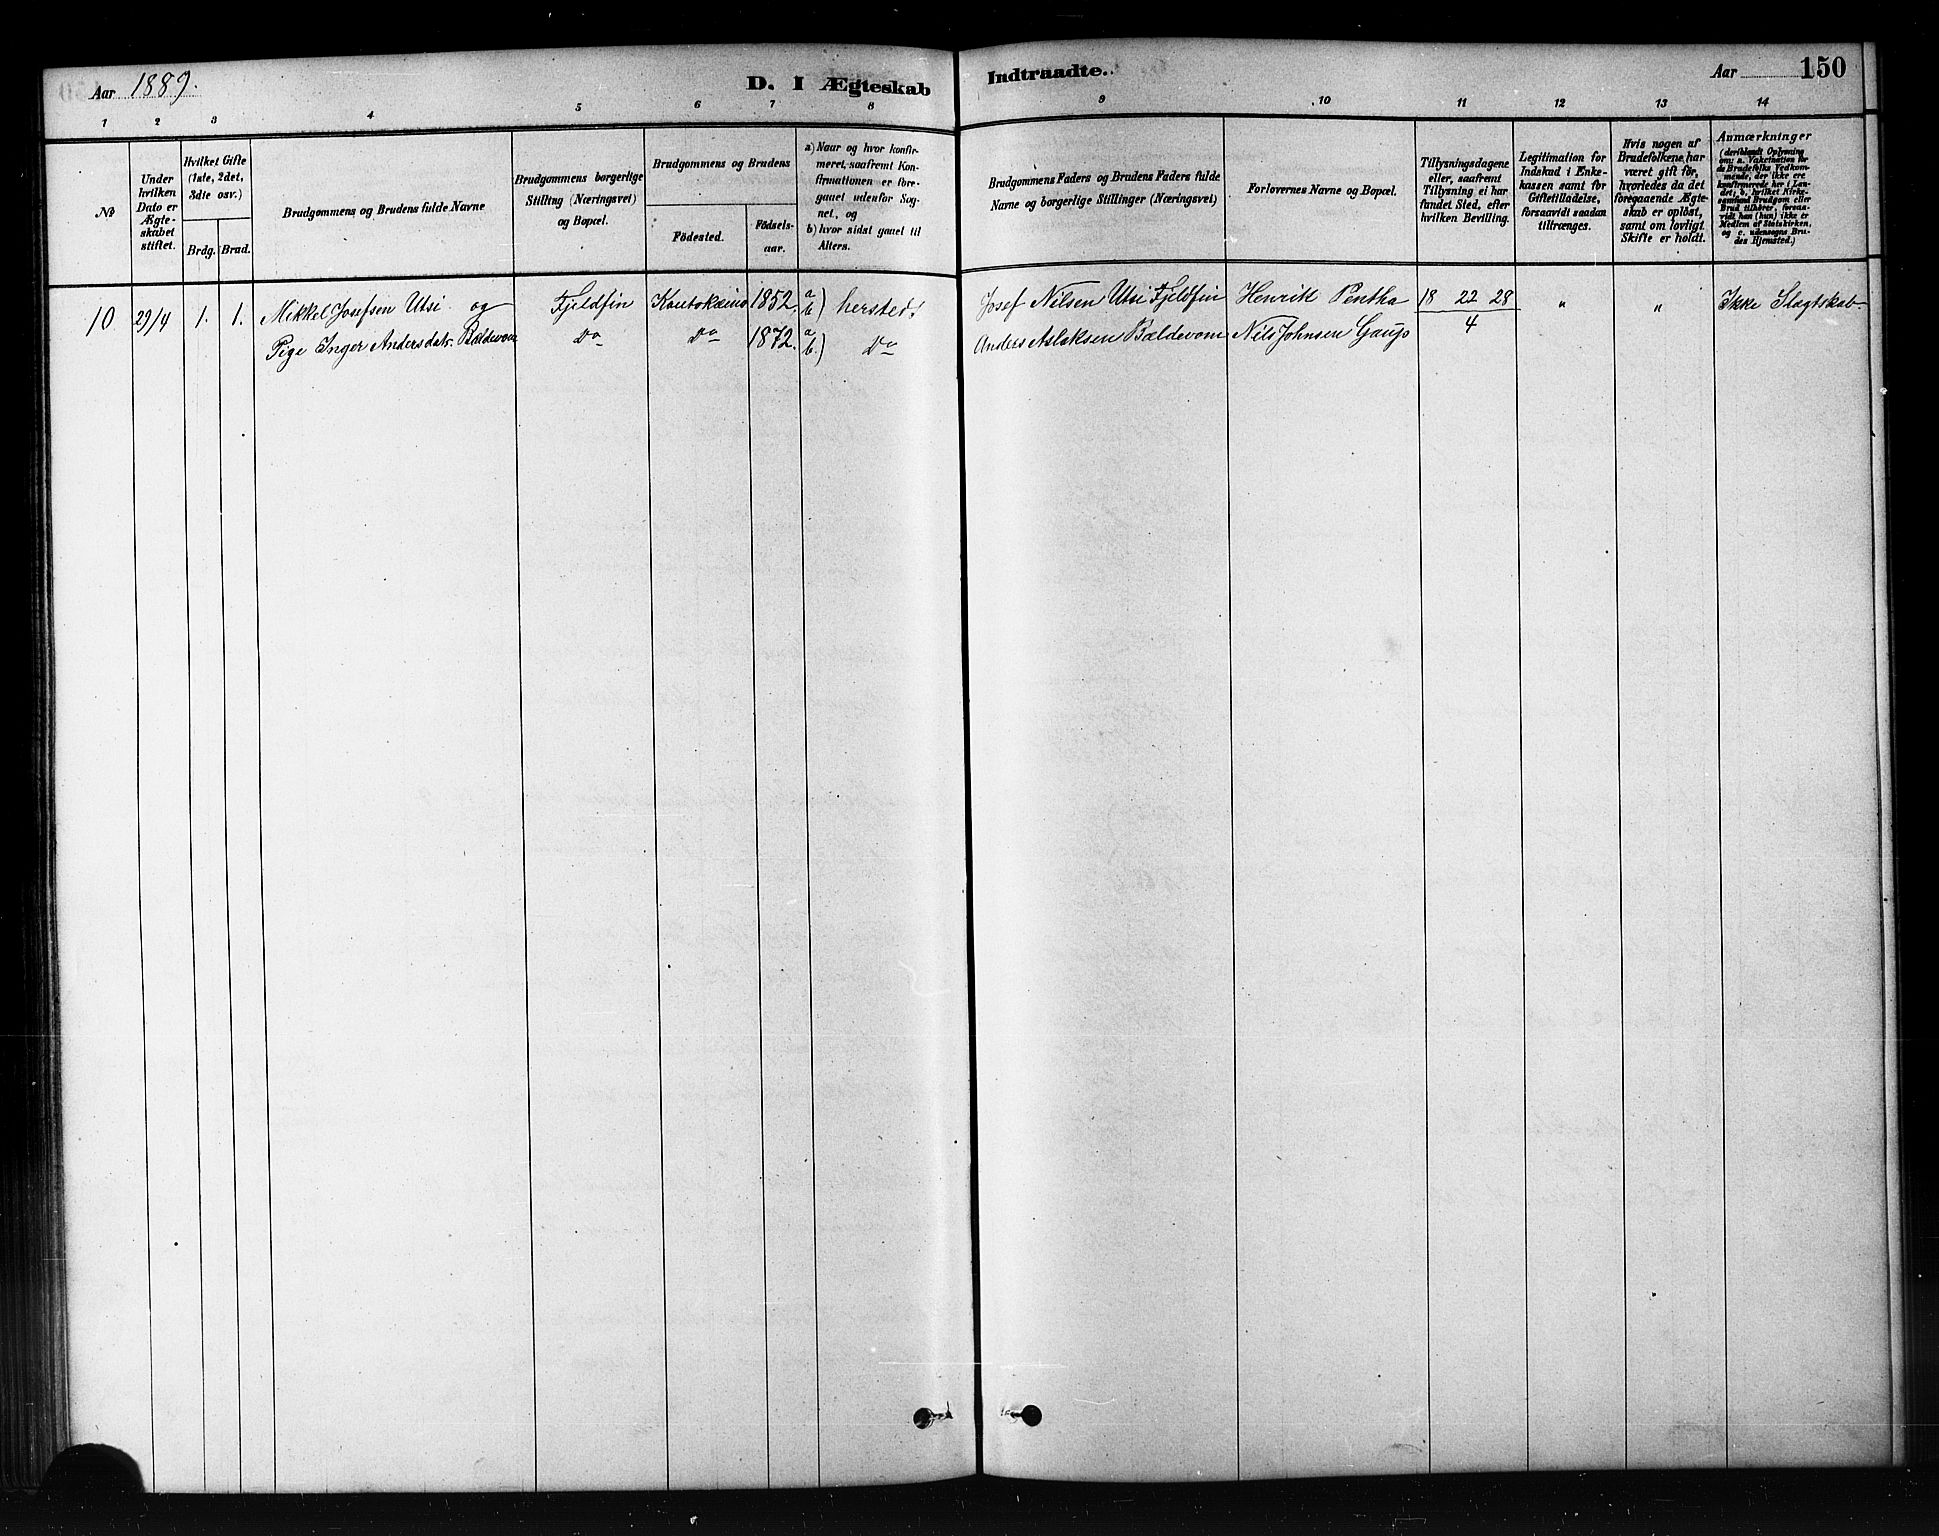 Aar 1889. D. I Ægteskab Indtraadte. Aar 150
1 2 3 4 5 6 7 8 9 10 11 12 13 14
No
Under hvilken Dato er Ægte-skabet stiftet.
Hvilket Gifte (1ste, 2det, 3die osv.)
Brdg. Brud.
Brudgommens og Brudens fulde Navne
Brudgommens borgerlige Stilling (Næringsvei) og Bopæl.
Brudgommens og Brudens
Födested. Födsels-aar.
a) Naar og hvor konfir-meret, saafremt Kon-firmationen er fore-gaaet udenfor Sog-net, og
b) hvor sidst gaaet til Alters.
Brudgommens Faders og Brudens Faders fulde Navne og borgerlige Stillinger (Næringsvei)
Forlovernes Navne og Bopæl.
Tillysningsdagene eller, saafremt Tillysning ei har fundet Sted, efter hvilken Bevilling.
Legitimation for Indskud i Enke-kassen samt for Giftetilladelse, forsaavidt saadan tiltrænges.
Hvis nogen af Brudefolkene, har været gift för, hvorledes da det foregaaende Ægte-skab er oplöst, samt om lovligt Skifte er holdt.
Anmærkninger (deriblandt Oplysning om: a. Vakcination for de Brudefolks Vedkom-mende, der ikke ere konfirmerede her i Lan-det; b. hvilket Kirke-samfund Brudgom eller Brud tilhører, forsaa-vidt han (hun) ikke er Medlem af Statskirken, og c. udensogns Bru-des Hjemsted.)
10 29/4 1. 1. Mikkel Josefsen Utsi og Fjeldfin Kautokæino 1852. a b) hersteds Josef Nilsen Utsi Fjeldfin Henrik Pentha 18 22 28 " " Ikke Slagtskab
Pige Inger Andersdatr. Bældevom Do Do 1872. a b.) Do Anders Aslaksen Bældevom Nils Johnsen Gaup 4